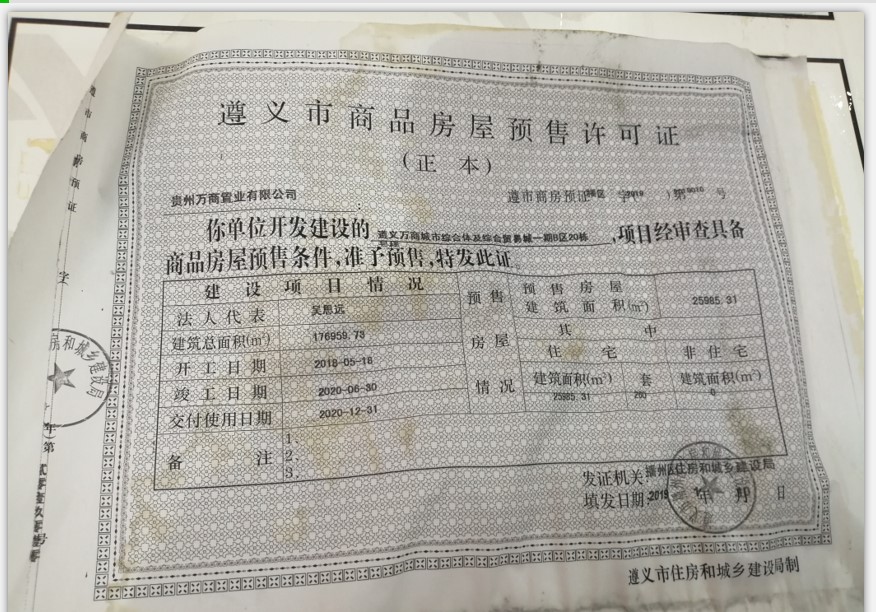 遵义市商品房屋预售许可证
(正本)
贵州万商置业有限公司
遵市商房预证 播区 字 2019 ) 第 0010 号
你单位开发建设的 遵义万商城市综合体及综合贸易城一期B区20栋 ,项目经审查具备
商品房屋预售条件,准予预售,特发此证。
建设项目情况
法人代表 吴思远
建筑总面积(m²) 176959.73
开工日期 2018-05-16
竣工日期 2020-06-30
交付使用日期 2020-12-31
预售房屋情况
预售房屋建筑面积(m²) 25985.31
其中
住宅 非住宅
建筑面积(m²) 套 建筑面积(m²)
25985.31 260 0
备注 1.
2.
3.
发证机关: 播州区住房和城乡建设局
填发日期: 2019 年 月 日
遵义市住房和城乡建设局制
遵市商房预证
字
房和城乡建设局
年)第
号